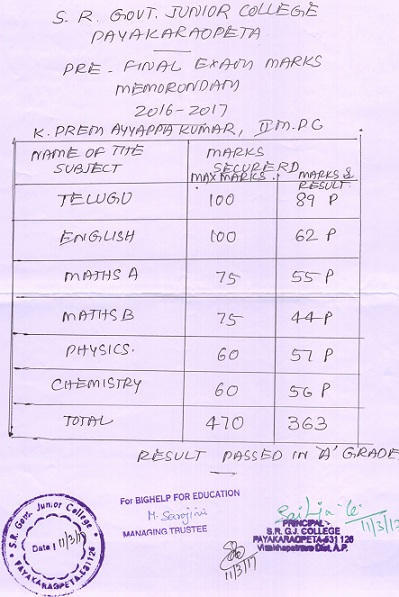 S. R. GOVT. JUNIOR COLLEGE
PAYAKARAOPETA
PRE-FINAL EXAM MARKS
MEMORONDAM
2016-2017
K. PREM AYYAPPA KUMAR, II M.P.C
NAME OF THE SUBJECT MARKS SECURERD
MAX MARKS. MARKS & RESULT
TELUGU 100 89 P
ENGLISH 100 62 P
MATHS A 75 55 P
MATHS B 75 44 P
PHYSICS. 60 57 P
CHEMISTRY 60 56 P
TOTAL 470 363
RESULT PASSED IN 'A' GRADE
S.R. Govt. Junior College
Date: 11/3/17
PAYAKARAOPETA-531 126
For BIGHELP FOR EDUCATION
M. Sarojini
MANAGING TRUSTEE
11/3/17
11/3/17
PRINCIPAL
S.R. G.J. COLLEGE
PAYAKARAOPETA-531 126
Visakhapatnam Dist, A.P.